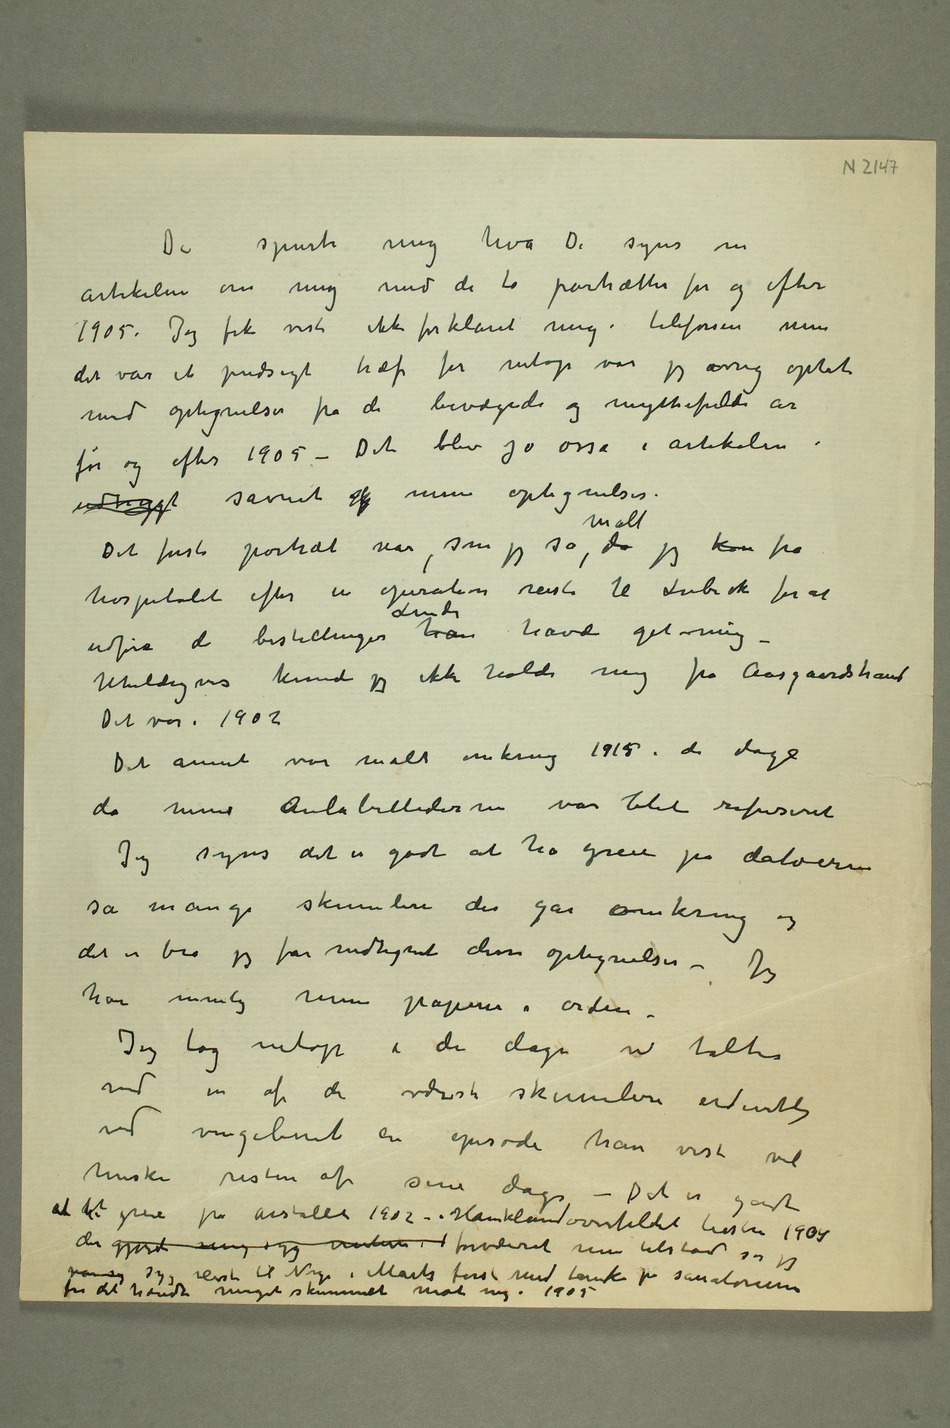 N 2147
De spurte mig hva De syns om
artikelen om mig med de to portrætter før og efter
1905. Jeg fik visst ikke forklaret mig i telefonen men
det var et pudsigt træf for netop var jeg ivrig optat
med optegnelser fra de bevægede og mythefulde år
før og efter 1905 – Det blev jo osså i artikelen
savnet af mine optegnelser.
Det første portræt var, som jeg sa, malt da jeg kom fra
hospitalet efter en operation reiste til Lübeck for at
udføre de bestillinger han Linde havde get mig –
Uheldigvis kunde jeg ikke holde mig fra Aasgaardstrand
Det var i 1902
Det annet var malt omkring 1915 i de dage
da mine Aulabillederne var blet refuseret
Jeg syns det er godt at ha greie på datoerne
så mange skumlere der går omkring og
det er bra jeg får nedtegnet disse optegnelser – Jeg
har nemlig mine papirer i orden.
Jeg tog netop i de dage vi taltes
ved en af de værste skumlere eidentlig
ved vingebenet en episode han visst vil
huske resten af sine dage – Det er godt
at ha greie på årstallet 1902 – Hauklandoverfaldet høsten 1904
der gjorde mig syg vinteren i forværret min tilstand så jeg
syg reiste til Norge i Marts først med tanke på sanatorium
før det hændte meget skummelt mot mig i 1905